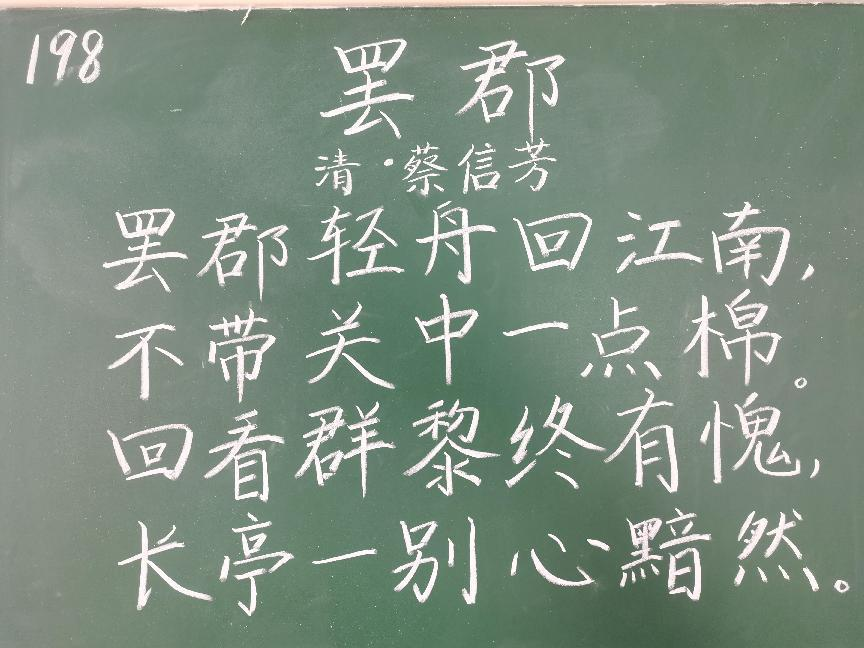 198
罢郡
清·蔡信芳
罢郡轻舟回江南,
不带关中一点棉。
回看群黎终有愧,
长亭一别心黯然。